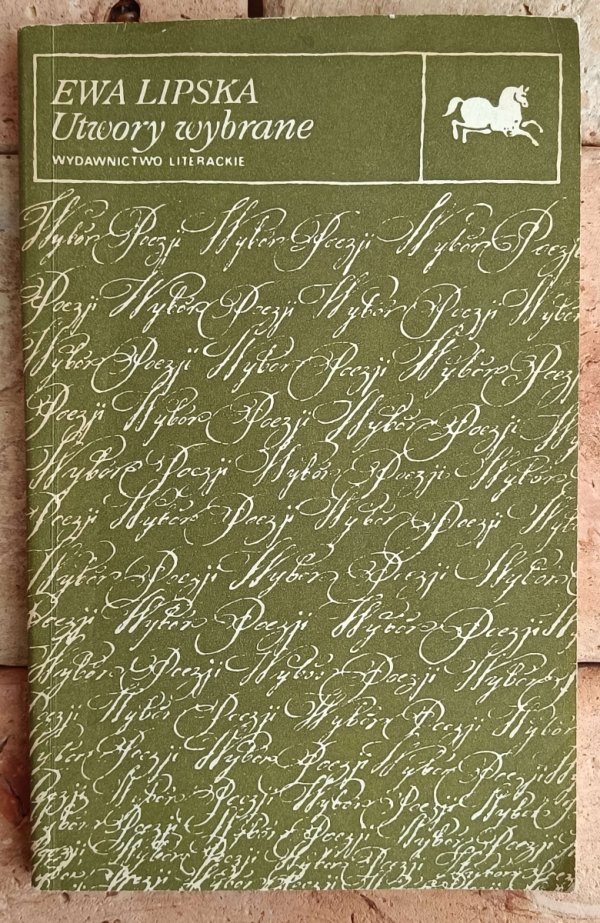 EWA LIPSKA
Utwory wybrane
WYDAWNICTWO LITERACKIE
Wybór Poezji Wybór Poezji Wybór Poezji
Poezji Wybór Poezji Wybór Poezji Wybór
Wybór Poezji Wybór Poezji Wybór Poezji
Poezji Wybór Poezji Wybór Poezji
Wybór Poezji Wybór Poezji Wybór
Poezji Wybór Poezji Wybór Poezji
Wybór Poezji Wybór Poezji Wybór
Poezji Wybór Poezji Wybór Poezji
Wybór Poezji Wybór Poezji Wybór
Poezji Wybór Poezji Wybór Poezji Wybór
Wybór Poezji Wybór Poezji Wybór Poezji
Poezji Wybór Poezji Wybór Poezji Wybór
Wybór Poezji Wybór Poezji Wybór Poezji
Wybór Poezji Wybór Poezji